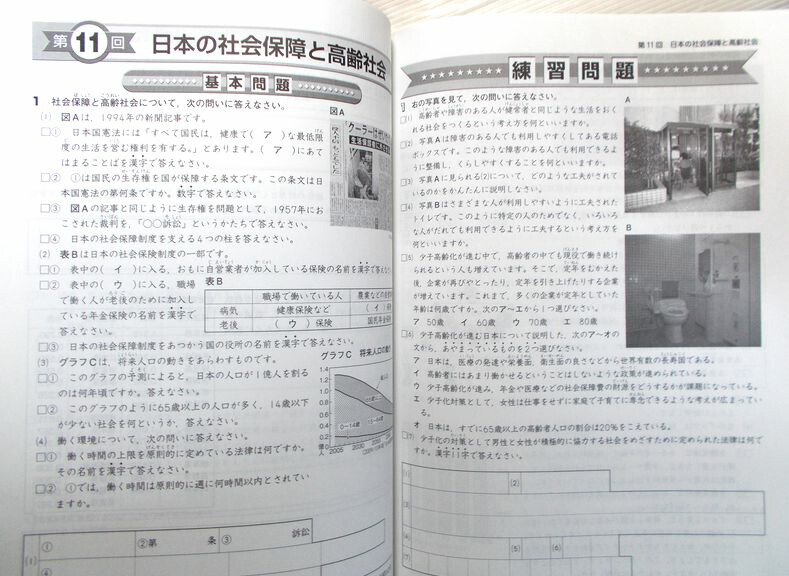 第11回 日本の社会保障と高齢社会
基本問題
1 社会保障と高齢社会について、次の問いに答えなさい。
図A
(1) 図Aは、1994年の新聞記事です。
□① 日本国憲法には「すべて国民は、健康で(ア)な最低限
度の生活を営む権利を有する。」とあります。(ア)にあて
はまることばを漢字で答えなさい。
□② ①は国民の生存権を国が保障する条文です。この条文は日
本国憲法の第何条ですか。数字で答えなさい。
□③ 図Aの記事と同じように生存権を問題として、1957年にお
こされた裁判を、「○○訴訟」というかたちで答えなさい。
□④ 日本の社会保障制度を支える4つの柱を答えなさい。
(2) 表Bは日本の社会保険制度の一部です。
□① 表中の(イ)に入る、おもに自営業者が加入している保険の名前を漢字で答え
□② 表中の(ウ)に入る、職場
で働く人が老後のために加入し
ている年金保険の名前を漢字で
答えなさい。
表B
職場で働いている人 農業などの
病気 健康保険など (イ)
老後 (ウ)保険 国民年金
□③ 日本の社会保障制度をあつかう国の役所の名前を漢字で答えなさい。
(3) グラフCは、将来人口の動きをあらわすものです。
グラフC 将来人口の動
□① このグラフの予測によると、日本の人口が1億人を割る
のは何年頃ですか。答えなさい。
□② このグラフのように65歳以上の人口が多く、14歳以下
が少ない社会を何というか、答えなさい。
1.4
1.2
1.0
0.8
0.6
0.4
0.2
0〜14歳
15〜64歳
2005
2030
(4) 働く環境について、次の問いに答えなさい。
□① 働く時間の上限を原則的に定めている法律は何ですか。
その名前を漢字で答えなさい。
□② ①では、働く時間は原則的に週に何時間以内とされてい
ますか。
(1) ① ②第 条 ③ 訴訟
④
第11回 日本の社会保障と高齢社会
練習問題
右の写真を見て、次の問いに答えなさい。
□(1) 高齢者や障害のある人が健常者と同じような生活をおく
れる社会をつくるという考え方を何といいますか。
□(2) 写真Aは障害のある人でも利用しやすくしてある電話
ボックスです。このような障害のある人でも利用できるよう
に整備し、くらしやすくすることを何といいますか。
□(3) 写真Aに見られる(2)について、どのような工夫がされて
いるのかをかんたんに説明しなさい。
□(4) 写真Bはさまざまな人が利用しやすいように工夫された
トイレです。このように特定の人のためでなく、いろいろ
な人がだれでも利用できるように工夫するという考え方を
何といいますか。
□(5) 少子高齢化が進む中で、高齢者の中でも現役で働き続け
られるという人も増えています。そこで、定年をむかえた
後、企業が再びやとったり、定年を引き上げたりする企業
が増えています。これまで、多くの企業が定年としていた
年齢は何歳ですか。次のア〜エから1つ選びなさい。
ア 50歳 イ 60歳 ウ 70歳 エ 80歳
□(6) 少子高齢化が進む日本について説明した、次のア〜オの
文から、あやまっているものを2つ選びなさい。
ア 日本は、医療の発達や栄養面、衛生面の良さなどから世界有数の長寿国である。
イ 高齢者にはあまり働かせるということはしないような政策が進められている。
ウ 少子高齢化が進み、年金や医療などの社会保障費の財源をどうするかが課題になっている。
エ 少子化対策として、女性は仕事をせずに家庭で子育てに専念できるような考えが広まってい
る。
オ 日本は、すでに65歳以上の高齢者人口の割合は20%をこえている。
□(7) 少子化の対策として男性と女性が積極的に協力する社会をめざすために定められた法律は何で
すか。漢字で答えなさい。
A
B
(1) (2)
(3)
(4) (5) (6)
(7)